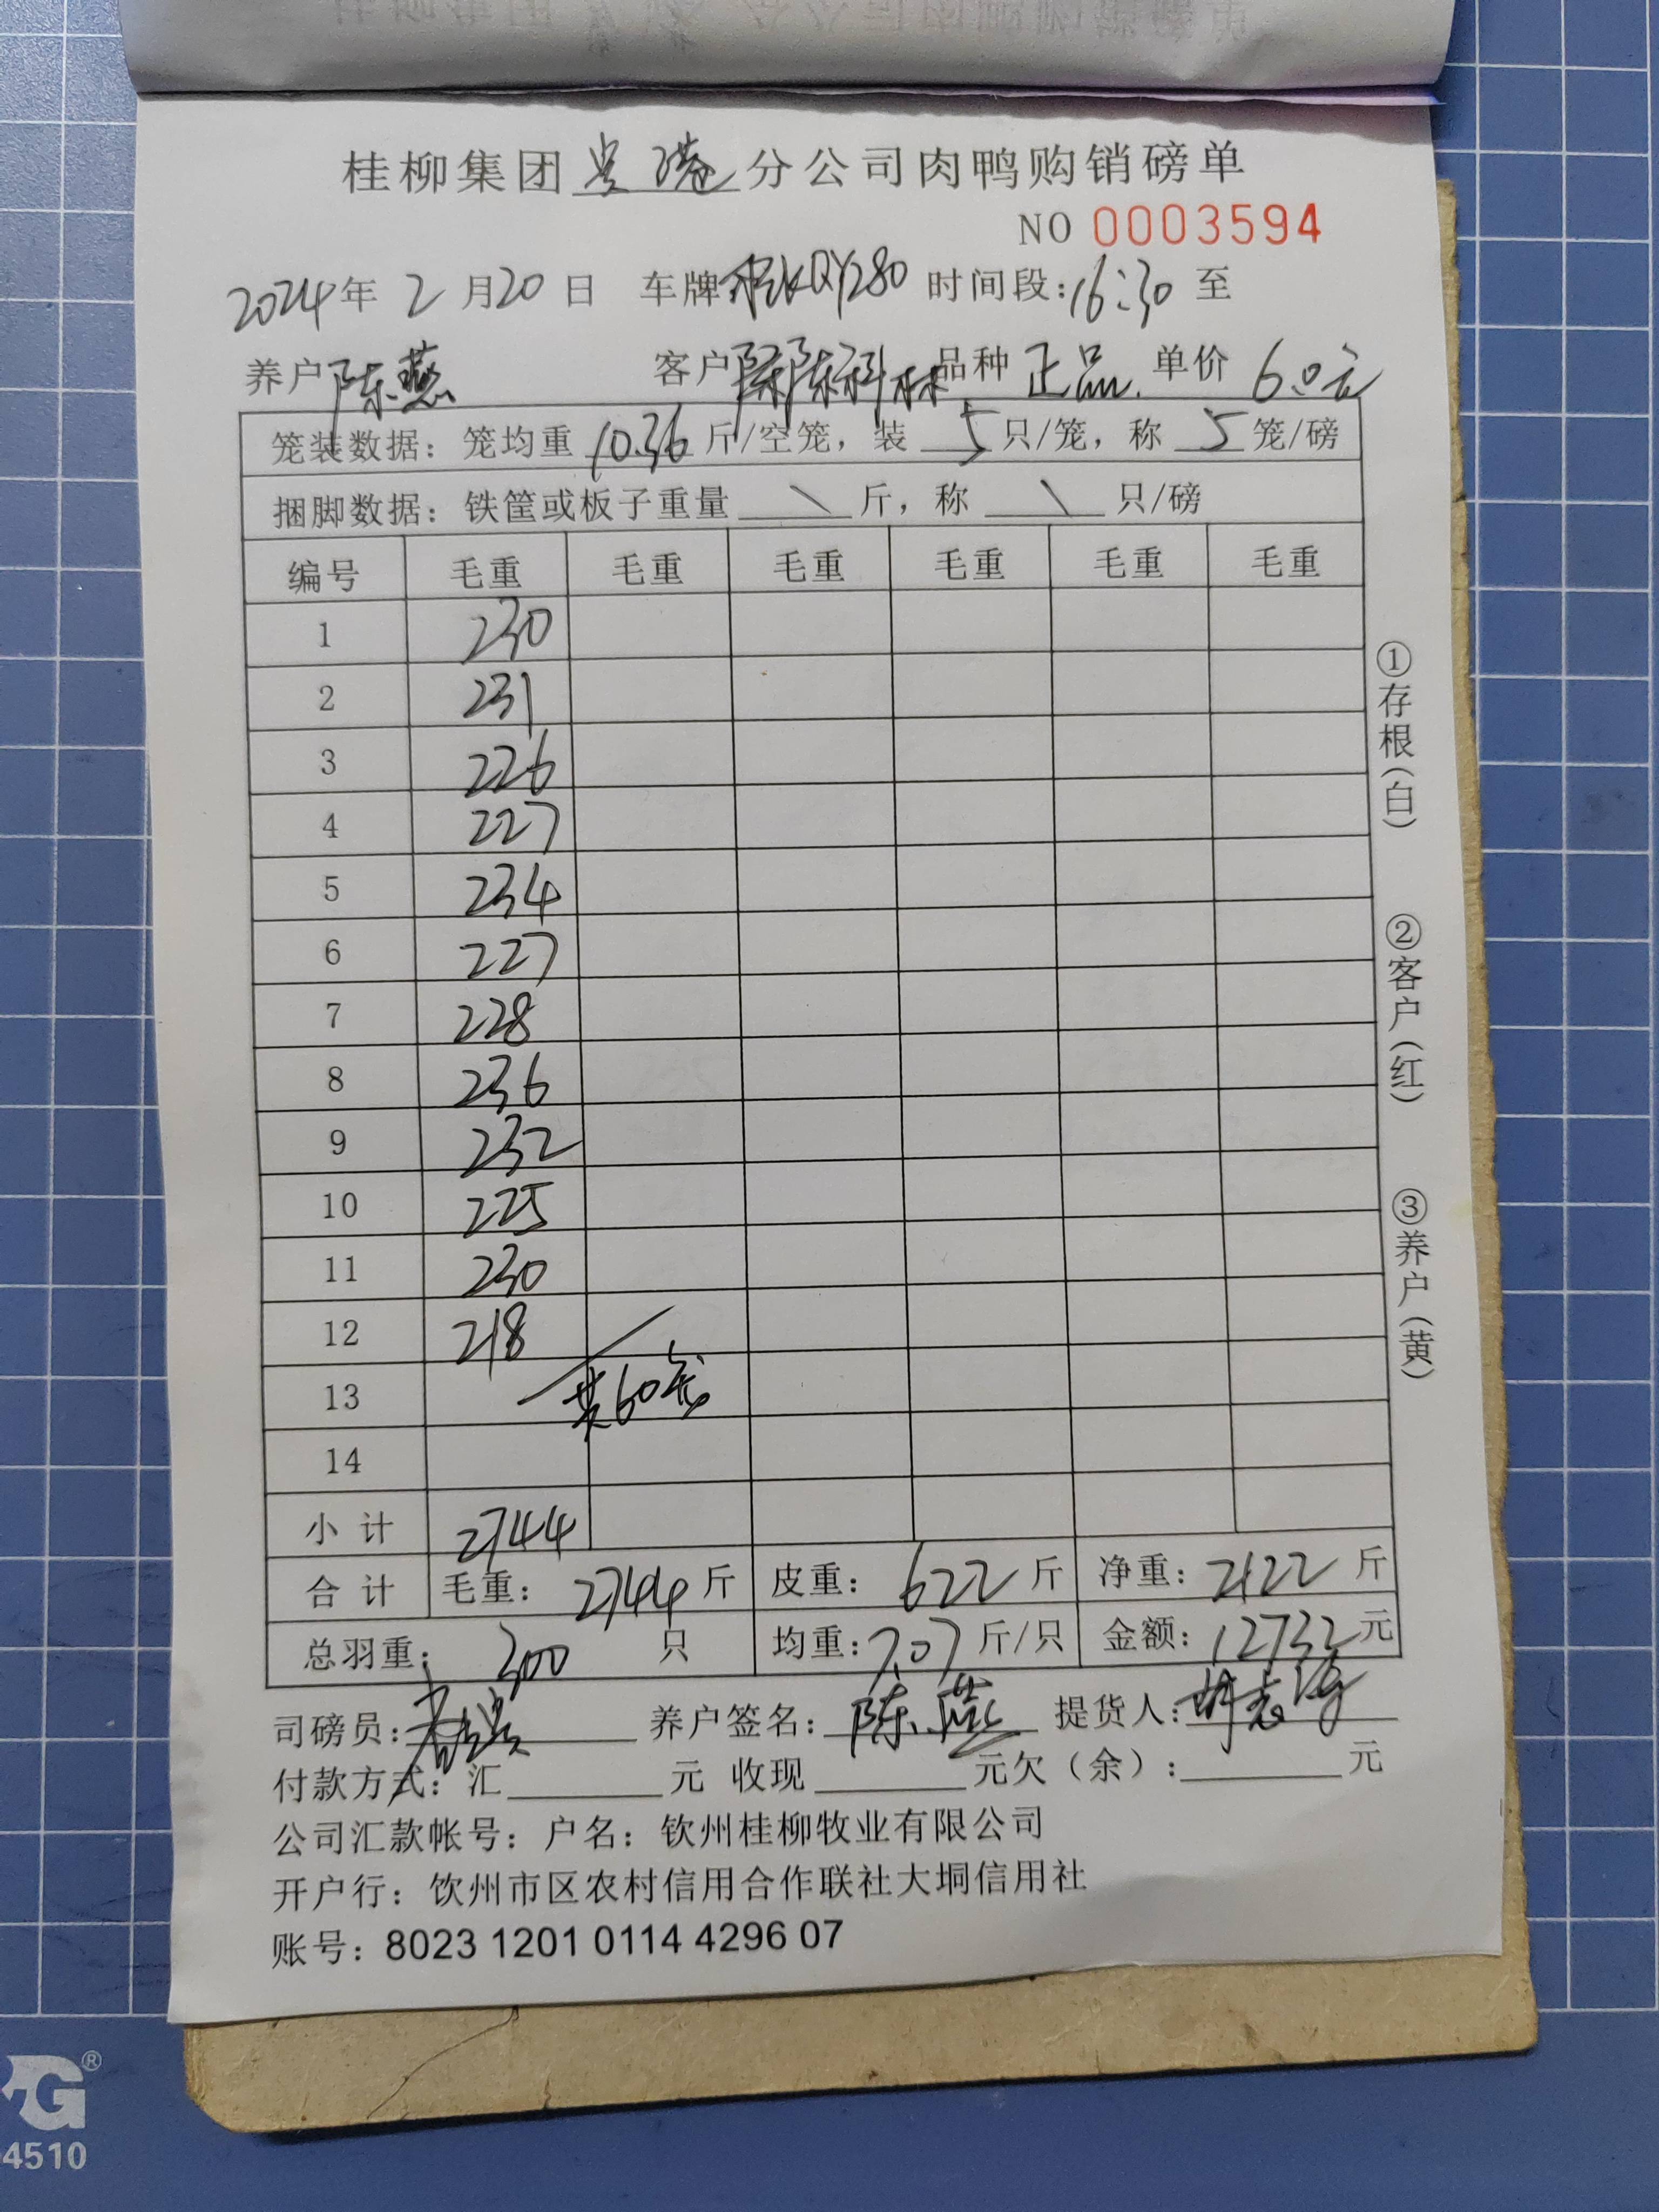 桂柳集团贵港分公司肉鸭购销磅单
NO 0003594
2024年2月20日 车牌KQY280 时间段:16:30至
养户陈燕 客户陈科林 品种正品. 单价6.0元
笼装数据：笼均重10.36斤/空笼，装5只/笼，称5笼/磅
捆脚数据：铁筐或板子重量\斤，称\只/磅
编号 毛重 毛重 毛重 毛重 毛重 毛重
1 230
2 231
3 226
4 227
5 234
6 227
7 228
8 236
9 232
10 225
11 230
12 218
13 共60笼
14
小计 2744
合计 毛重：2744斤 皮重：622斤 净重：2122斤
总羽重：300只 均重：7.07斤/只 金额：12732元
司磅员： 养户签名：陈燕 提货人：胡志海
付款方式：汇 元 收现 元欠（余）： 元
公司汇款帐号：户名：钦州桂柳牧业有限公司
开户行：饮州市区农村信用合作联社大垌信用社
账号：8023 1201 0114 4296 07
①存根(白) ②客户(红) ③养户(黄)
G®
4510